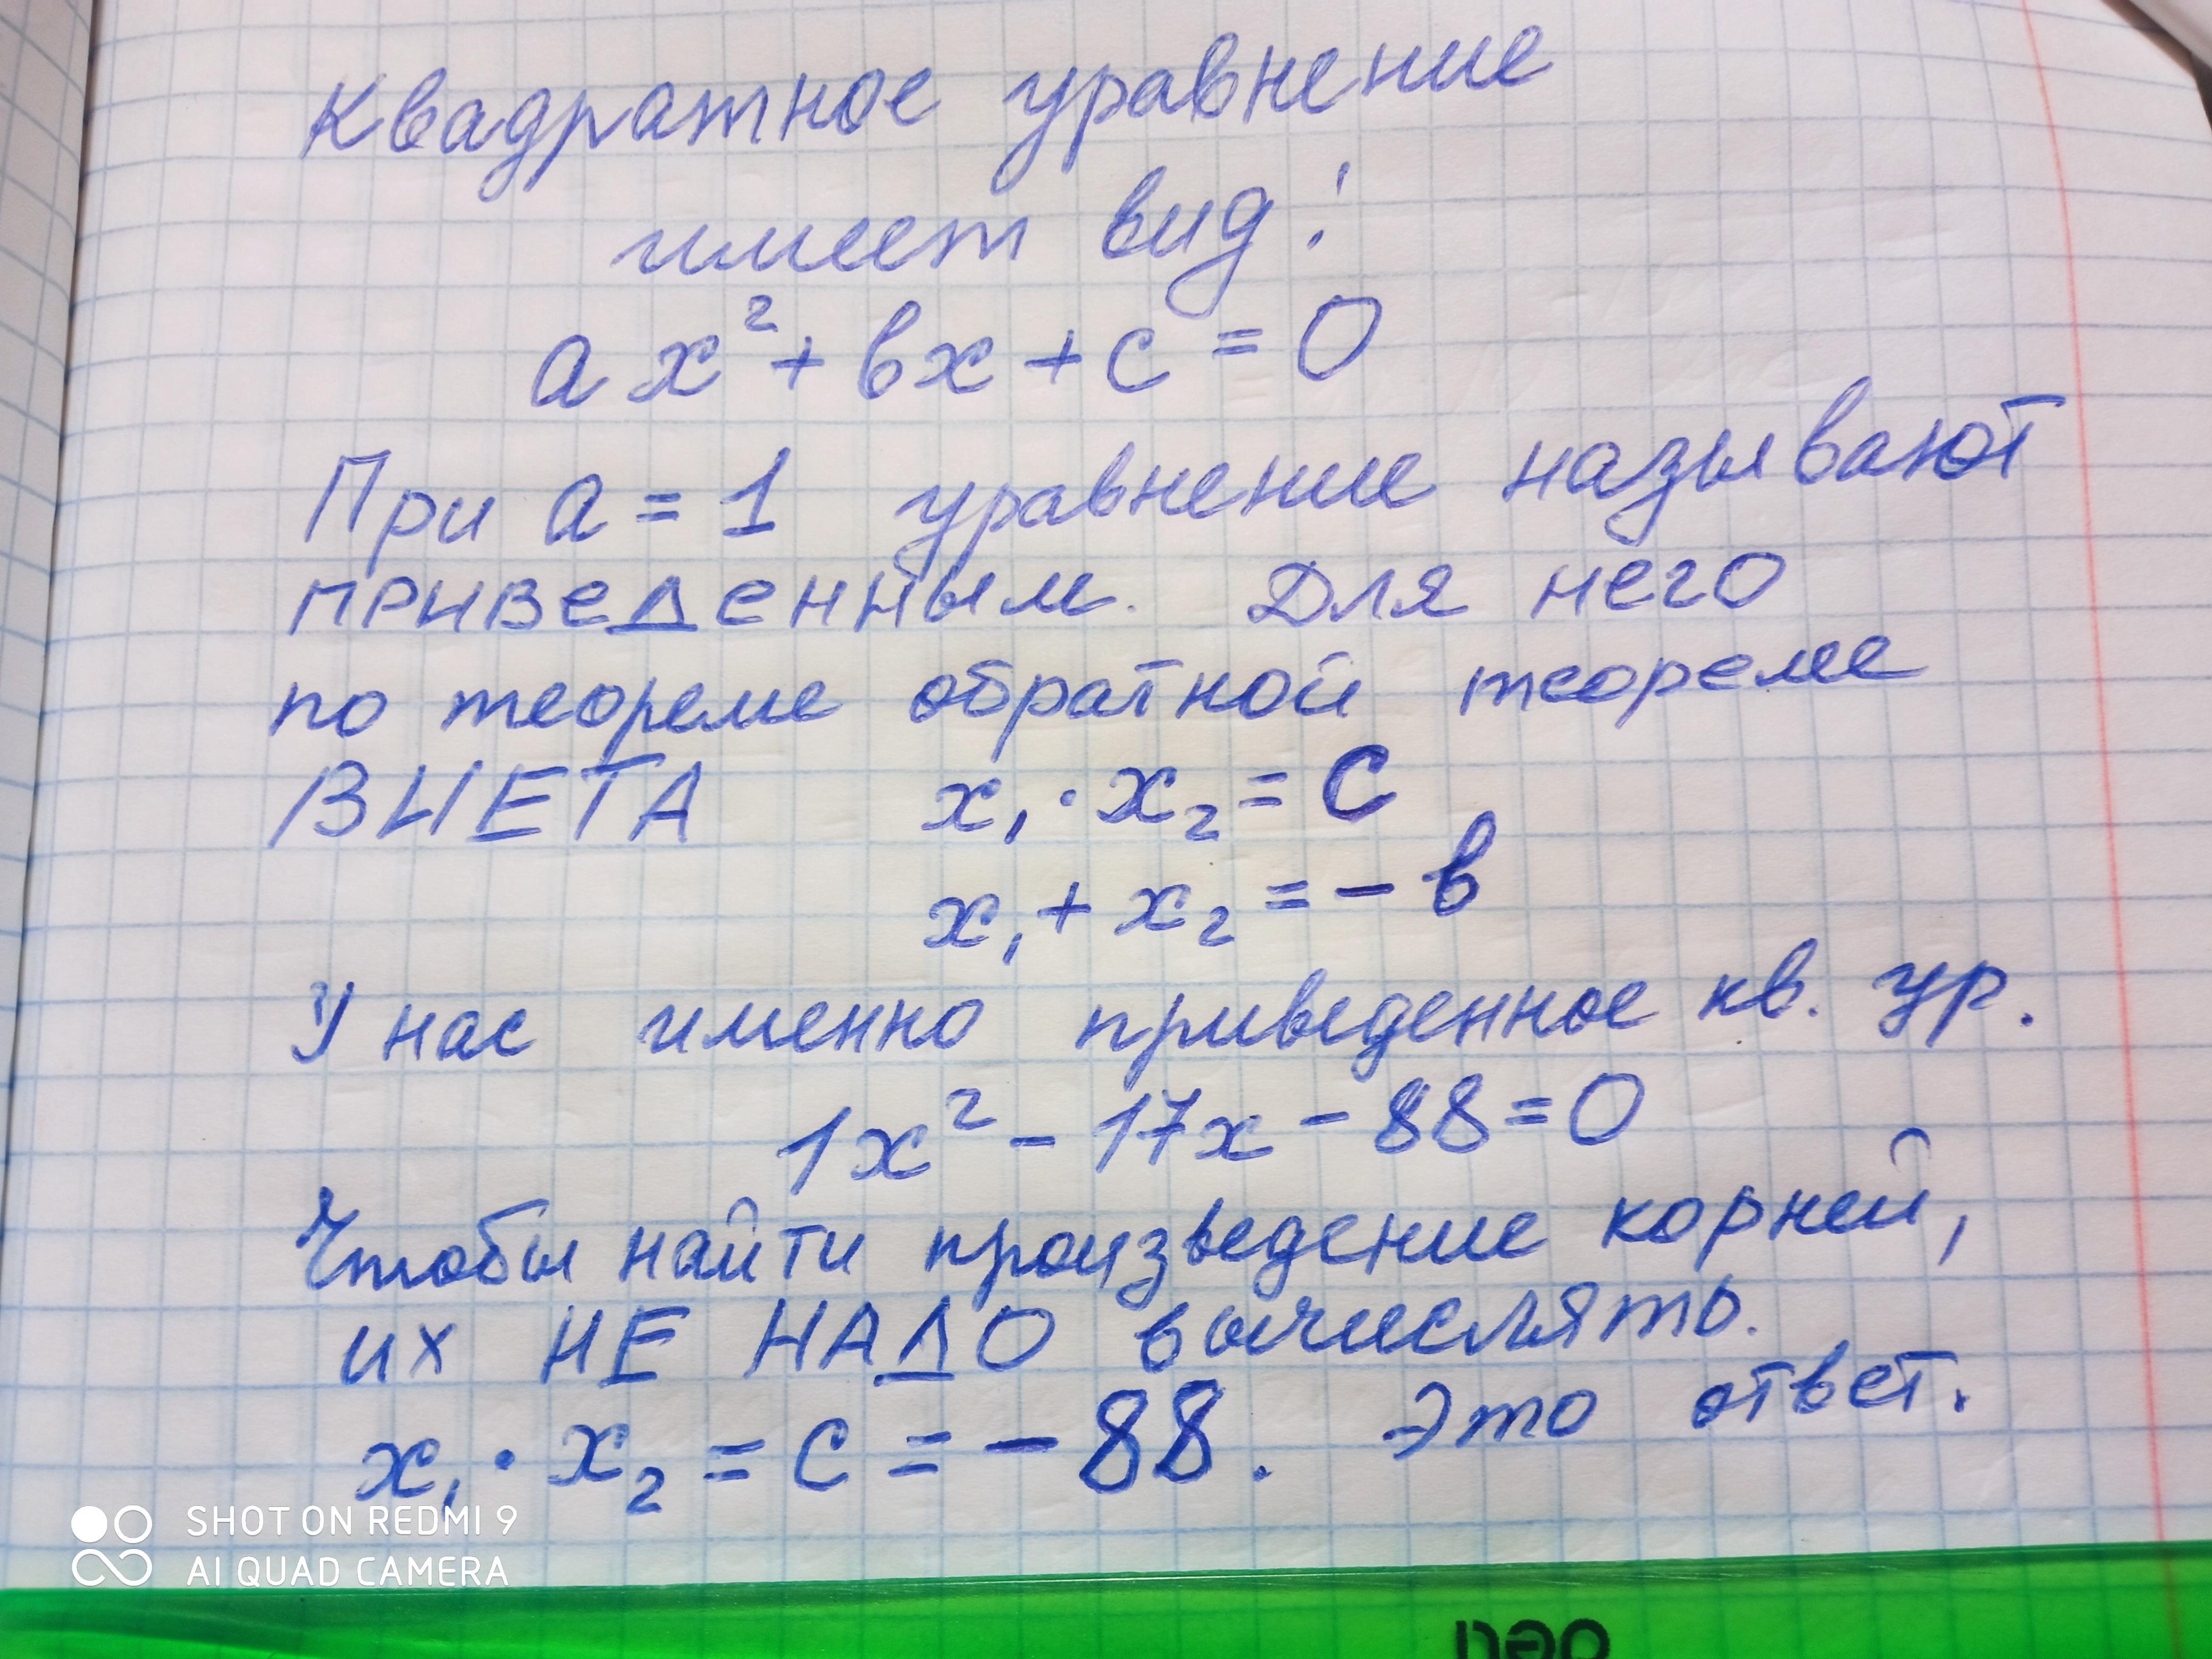 Квадратное уравнение
имеет вид:
ax² + bx + c = 0
При a = 1 уравнение называют
приведенным. Для него
по теореме обратной теореме
ВИЕТА x₁ · x₂ = c
x₁ + x₂ = - b
У нас именно приведенное кв. ур.
1x² - 17x - 88 = 0
Чтобы найти произведение корней,
их НЕ НАДО вычислять.
x₁ · x₂ = c = - 88. Это ответ.
SHOT ON REDMI 9
AI QUAD CAMERA